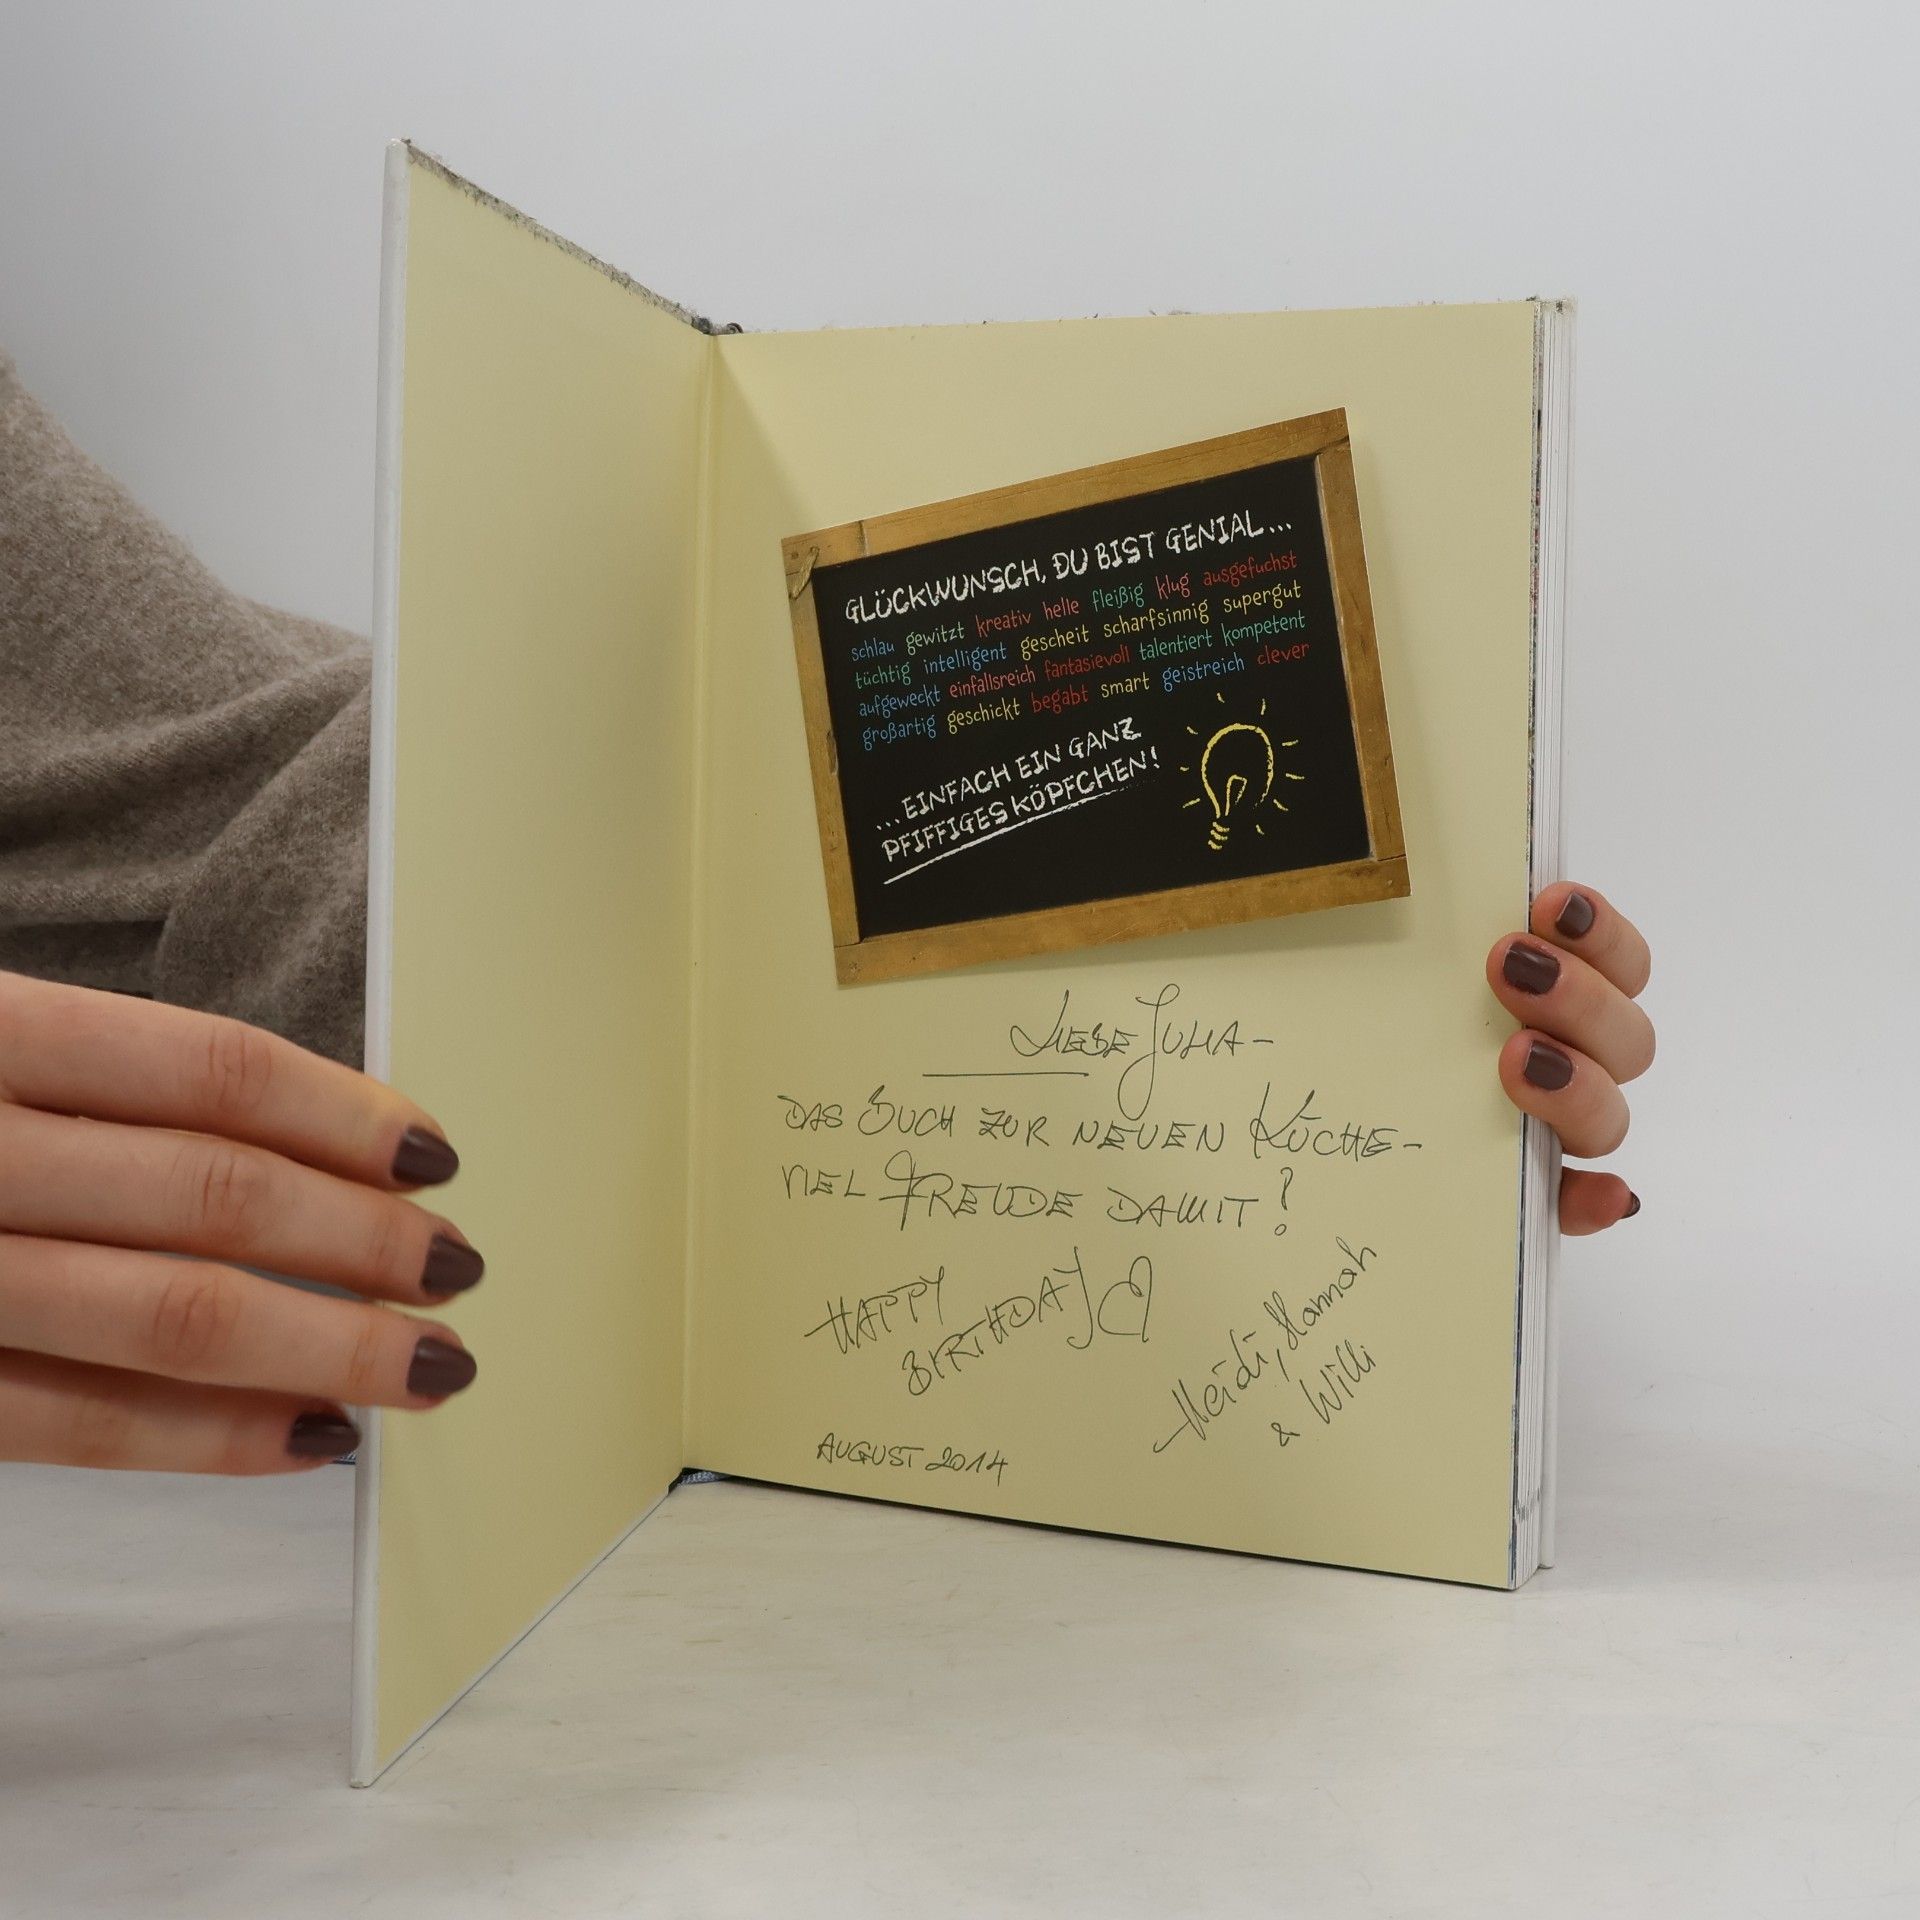 GLÜCKWUNSCH, DU BIST GENIAL...
schlau gewitzt kreativ helle fleißig klug ausgefuchst
tüchtig intelligent gescheit scharfsinnig supergut
aufgeweckt einfallsreich fantasievoll talentiert kompetent
großartig geschickt begabt smart geistreich clever
...EINFACH EIN GANZ
PFIFFIGES KÖPFCHEN!
LIEBE JULIA -
DAS BUCH ZUR NEUEN KÜCHE -
VIEL FREUDE DAMIT!
HAPPY
BIRTHDAY
Heidi, Hannah
& Willi
AUGUST 2014